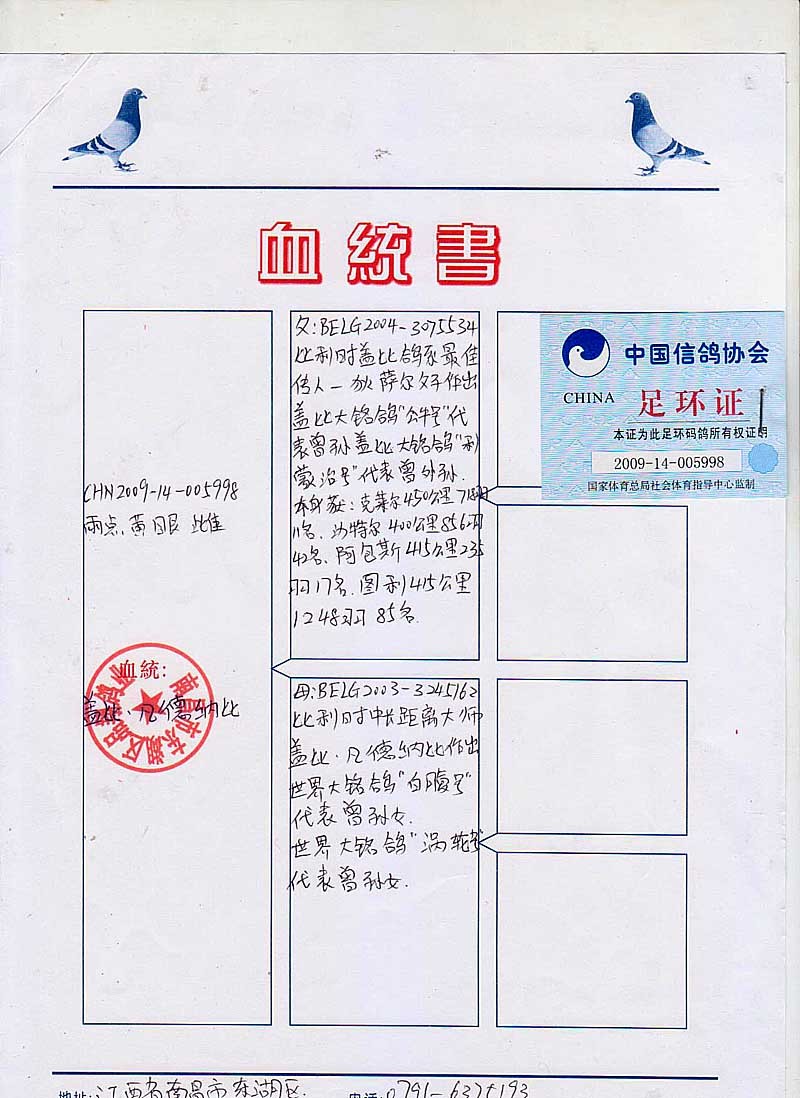 血統書
中国信鸽协会
CHINA
足环证
本证为此足环码鸽所有权证明
2009-14-005998
国家体育总局社会体育指导中心监制
CHN2009-14-005998
雨点 黄眼 雌
血統:
盖比·凡德纳比
父:BELG2004-3075534
比利时盖比鸽系最佳
传人—狄萨尔父子作出
盖比大铭鸽"公牛号"代
表曾孙盖比大铭鸽"利
蒙治号"代表曾外孙.
本身获:克莱尔450公里718羽
11名.沙特尔400公里856羽
42名.阿包斯415公里235
羽17名.图利415公里
1248羽 85名.
母:BELG2003-3245162
比利时中长距离大师
盖比·凡德纳比作出
世界大铭鸽"白腹号"
代表曾孙女.
世界大铭鸽"涡轮号"
代表曾孙女.
地址:江西省南昌市东湖区.
电话:0791-